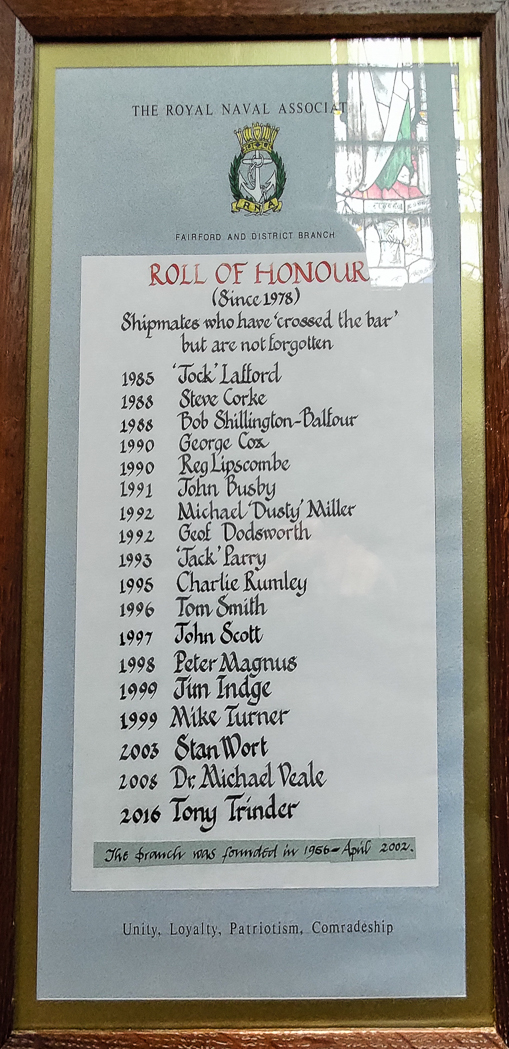 THE ROYAL NAVAL ASSOCIAT
RNA
FAIRFORD AND DISTRICT BRANCH
ROLL OF HONOUR
(Since 1978)
Shipmates who have 'crossed the bar'
but are not forgotten
1985 'Jock' Lafford
1988 Steve Corke
1988 Bob Shillington-Balfour
1990 George Cox
1990 Reg Lipscombe
1991 John Busby
1992 Michael 'Dusty' Miller
1992 Geof Dodsworth
1993 'Jack' Parry
1995 Charlie Rumley
1996 Tom Smith
1997 John Scott
1998 Peter Magnus
1999 Jim Indge
1999 Mike Turner
2003 Stan Wort
2008 Dr. Michael Veale
2016 Tony Trinder
The branch was founded in 1966-April 2002.
Unity, Loyalty, Patriotism, Comradeship